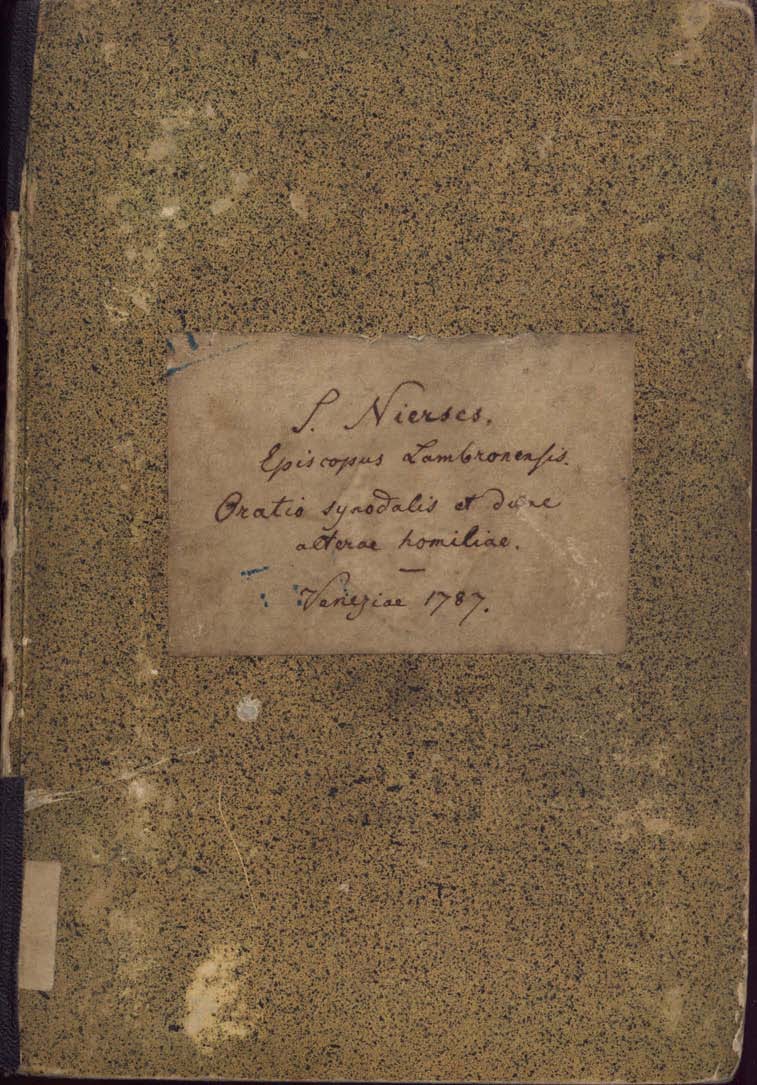 S. Nierses.
Episcopus Lambronensis.
Oratio synodalis et duae
alterae homiliae.
—
Veneziae 1787.